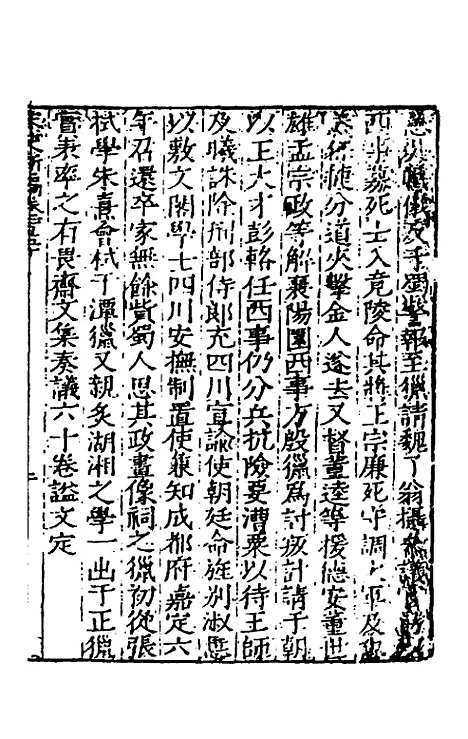 報至獵請魏了翁攝參議官
西事募死士入竟陵命其將王宗廉死守調大軍及
捷分道夾擊金人遂去又督董逵等援德安董世
雄孟宗政等解襄陽圍西事方殷獵為討叛計請于朝
以王大才彭輅任西事仍分兵抗險要漕粟以待王師
及曦誅除刑部侍郎充四川宣諭使朝廷命旌别淑慝
以敷文閣學士四川安撫制置使兼知成都府嘉定六
年召還卒家無餘貲蜀人思其政畫像祠之獵初從張
栻學朱熹會栻于潭獵又親炙湖湘之學一出于正獵
實表率之有畏齋文集奏議六十卷謚文定